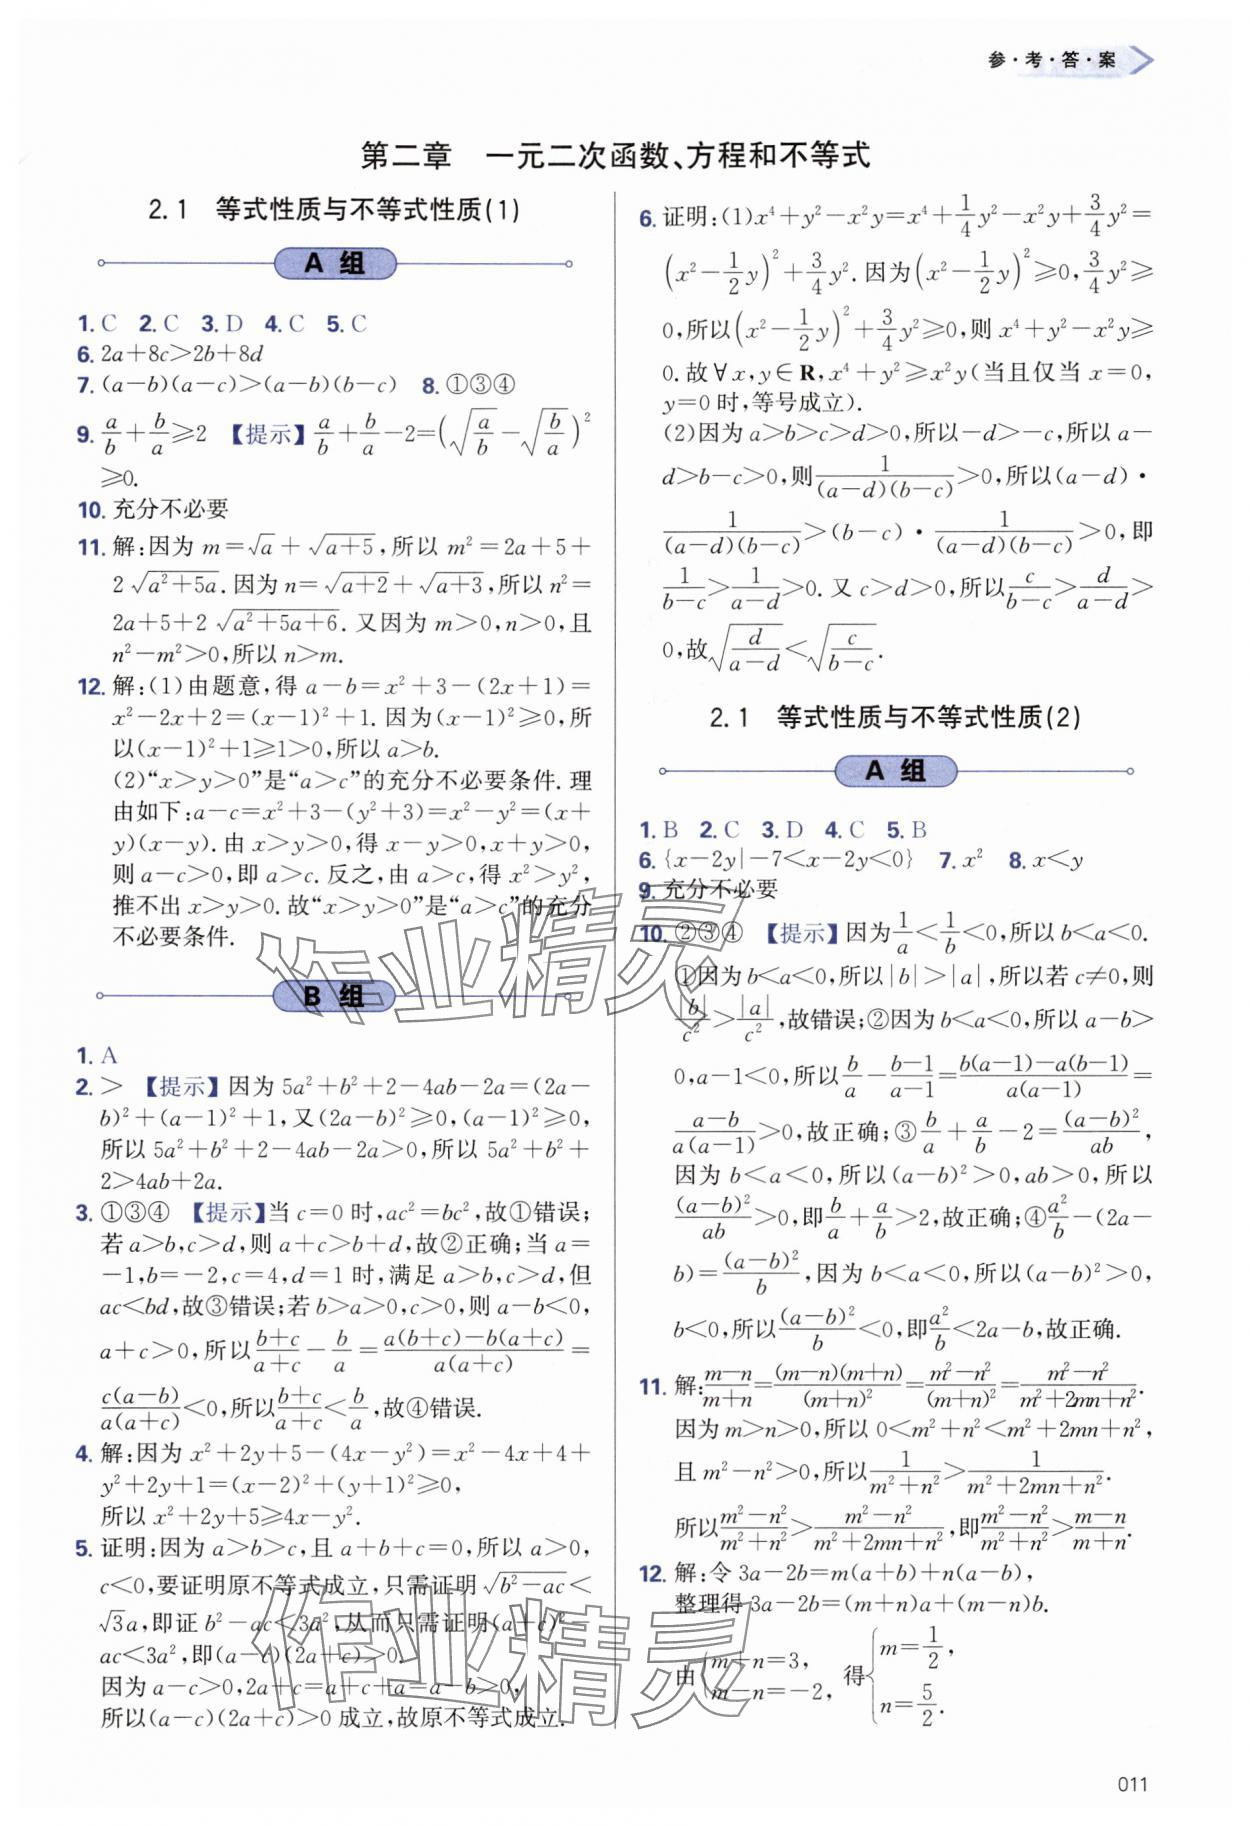 参·考·答·案
第二章 一元二次函数、方程和不等式
2.1 等式性质与不等式性质(1)
A 组
1. C 2. C 3. D 4. C 5. C
6. 2a+8c>2b+8d
7. (a-b)(a-c)>(a-b)(b-c) 8. ①③④
9. a/b+b/a≥2 【提示】a/b+b/a-2=(√(a/b)-√(b/a))²
≥0.
10. 充分不必要
11. 解:因为 m=√a+√(a+5),所以 m²=2a+5+
2√(a²+5a). 因为 n=√(a+2)+√(a+3),所以 n²=
2a+5+2√(a²+5a+6). 又因为 m>0,n>0,且
n²-m²>0,所以 n>m.
12. 解:(1)由题意,得 a-b=x²+3-(2x+1)=
x²-2x+2=(x-1)²+1. 因为(x-1)²≥0,所
以(x-1)²+1≥1>0,所以 a>b.
(2)“x>y>0”是“a>c”的充分不必要条件. 理
由如下:a-c=x²+3-(y²+3)=x²-y²=(x+
y)(x-y). 由 x>y>0,得 x-y>0,x+y>0,
则 a-c>0,即 a>c. 反之,由 a>c,得 x²>y²,
推不出 x>y>0. 故“x>y>0”是“a>c”的充分
不必要条件.
B 组
1. A
2. > 【提示】因为 5a²+b²+2-4ab-2a=(2a-
b)²+(a-1)²+1,又(2a-b)²≥0,(a-1)²≥0,
所以 5a²+b²+2-4ab-2a>0,所以 5a²+b²+
2>4ab+2a.
3. ①③④ 【提示】当 c=0 时,ac²=bc²,故①错误;
若 a>b,c>d,则 a+c>b+d,故②正确;当 a=
-1,b=-2,c=4,d=1 时,满足 a>b,c>d,但
ac<bd,故③错误;若 b>a>0,c>0,则 a-b<0,
a+c>0,所以(b+c)/(a+c)-b/a=(a(b+c)-b(a+c))/(a(a+c))=
c(a-b)/(a(a+c))<0,所以(b+c)/(a+c)<b/a,故④错误.
4. 解:因为 x²+2y+5-(4x-y²)=x²-4x+4+
y²+2y+1=(x-2)²+(y+1)²≥0,
所以 x²+2y+5≥4x-y².
5. 证明:因为 a>b>c,且 a+b+c=0,所以 a>0,
c<0,要证明原不等式成立,只需证明√(b²-ac)<
√3a,即证 b²-ac<3a²,从而只需证明(a+c)²-
ac<3a²,即(a-c)(2a+c)>0.
因为 a-c>0,2a+c=a+c+a=a-b>0,
所以(a-c)(2a+c)>0 成立,故原不等式成立.
6. 证明:(1)x⁴+y²-x²y=x⁴+1/4y²-x²y+3/4y²=
(x²-1/2y)²+3/4y². 因为(x²-1/2y)²≥0,3/4y²≥
0,所以(x²-1/2y)²+3/4y²≥0,则 x⁴+y²-x²y≥
0. 故∀x,y∈R,x⁴+y²≥x²y(当且仅当 x=0,
y=0 时,等号成立).
(2)因为 a>b>c>d>0,所以-d>-c,所以 a-
d>b-c>0,则1/((a-d)(b-c))>0,所以(a-d)·
1/((a-d)(b-c))>(b-c)·1/((a-d)(b-c))>0,即
1/(b-c)>1/(a-d)>0. 又 c>d>0,所以c/(b-c)>d/(a-d)>
0,故√(d/(a-d))<√(c/(b-c)).
2.1 等式性质与不等式性质(2)
A 组
1. B 2. C 3. D 4. C 5. B
6. {x-2y|-7<x-2y<0} 7. x² 8. x<y
9. 充分不必要
10. ②③④ 【提示】因为1/a<1/b<0,所以 b<a<0.
①因为 b<a<0,所以|b|>|a|,所以若 c≠0,则
|b|/c²>|a|/c²,故错误;②因为 b<a<0,所以 a-b>
0,a-1<0,所以b/a-(b-1)/(a-1)=(b(a-1)-a(b-1))/(a(a-1))=
(a-b)/(a(a-1))>0,故正确;③b/a+a/b-2=(a-b)²/ab,
因为 b<a<0,所以(a-b)²>0,ab>0,所以
(a-b)²/ab>0,即b/a+a/b>2,故正确;④a²/b-(2a-
b)=(a-b)²/b,因为 b<a<0,所以(a-b)²>0,
b<0,所以(a-b)²/b<0,即a²/b<2a-b,故正确.
11. 解:(m-n)/(m+n)=(m-n)(m+n)/(m+n)²=(m²-n²)/(m+n)²=(m²-n²)/(m²+2mn+n²).
因为 m>n>0,所以 0<m²+n²<m²+2mn+n²,
且 m²-n²>0,所以1/(m²+n²)>1/(m²+2mn+n²).
所以(m²-n²)/(m²+n²)>(m²-n²)/(m²+2mn+n²),即(m²-n²)/(m²+n²)>(m-n)/(m+n).
12. 解:令 3a-2b=m(a+b)+n(a-b),
整理得 3a-2b=(m+n)a+(m-n)b.
由{m+n=3, m-n=-2, 得{m=1/2, n=5/2.
011
作业精灵
作业精灵